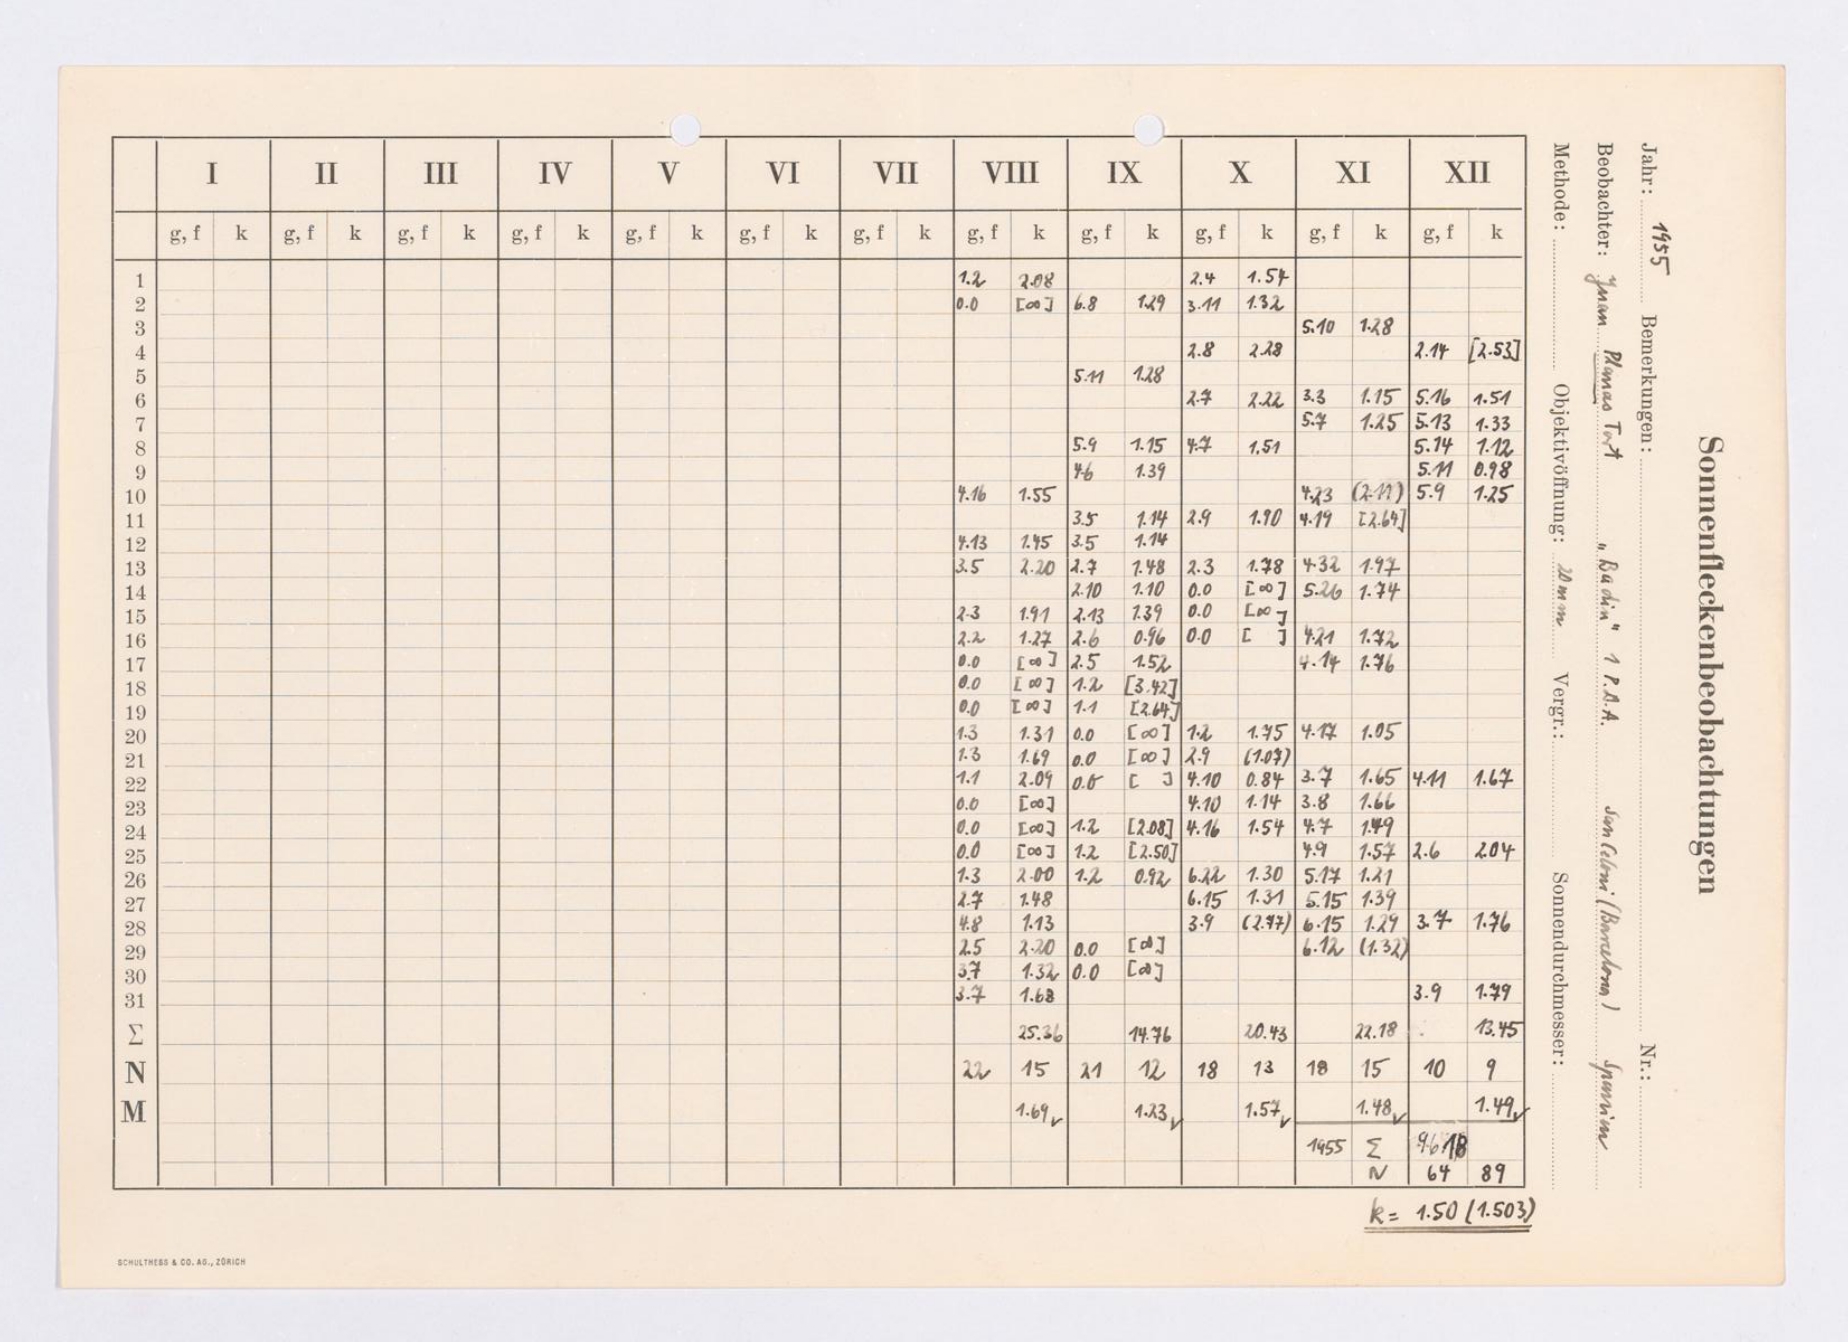 Sonnenfleckenbeobachtungen
Jahr: 1955 Bemerkungen: Nr.:
Beobachter: Juan Planas Tort "Badin" 1 P.A.A. San Celoni (Barcelona) Spanien
Methode: Objektivöffnung: 20 mm Vergr.: Sonnendurchmesser:
I II III IV V VI VII VIII IX X XI XII
g, f k g, f k g, f k g, f k g, f k g, f k g, f k g, f k g, f k g, f k g, f k g, f k
1 1.2 2.08 2.4 1.54
2 0.0 [∞] 6.8 1.29 3.11 1.32
3 5.10 1.28
4 2.8 2.28 2.14 [2.53]
5 5.11 1.28
6 2.7 2.22 3.3 1.15 5.16 1.51
7 5.7 1.25 5.13 1.33
8 5.9 1.15 4.7 1.51 5.14 1.12
9 4.6 1.39 5.11 0.98
10 4.16 1.55 4.23 (2.11) 5.9 1.25
11 3.5 1.14 2.9 1.90 4.19 [2.64]
12 4.13 1.45 3.5 1.14
13 3.5 2.20 2.7 1.48 2.3 1.78 4.32 1.97
14 2.10 1.10 0.0 [∞] 5.26 1.74
15 2.3 1.91 2.13 1.39 0.0 [∞]
16 2.2 1.27 2.6 0.96 0.0 [ ] 4.21 1.72
17 0.0 [∞] 2.5 1.52 4.14 1.76
18 0.0 [∞] 1.2 [3.42]
19 0.0 [∞] 1.1 [2.64]
20 1.3 1.31 0.0 [∞] 1.2 1.75 4.17 1.05
21 1.3 1.69 0.0 [∞] 2.9 (1.07)
22 1.1 2.09 0.0 [ ] 4.10 0.84 3.7 1.65 4.11 1.67
23 0.0 [∞] 4.10 1.14 3.8 1.66
24 0.0 [∞] 1.2 [2.08] 4.16 1.54 4.7 1.49
25 0.0 [∞] 1.2 [2.50] 4.9 1.57 2.6 2.04
26 1.3 2.00 1.2 0.92 6.22 1.30 5.17 1.21
27 2.7 1.48 6.15 1.31 5.15 1.39
28 4.8 1.13 3.9 (2.77) 6.15 1.29 3.7 1.76
29 2.5 2.20 0.0 [∞] 6.12 (1.32)
30 3.7 1.32 0.0 [∞]
31 3.7 1.68 3.9 1.79
Σ 25.36 14.76 20.43 22.18 13.45
N 22 15 21 12 18 13 18 15 10 9
M 1.69 1.23 1.57 1.48 1.49
1955 Σ 96.18
N 64 89
k = 1.50 (1.503)
SCHULTHESS & CO. AG., ZÜRICH